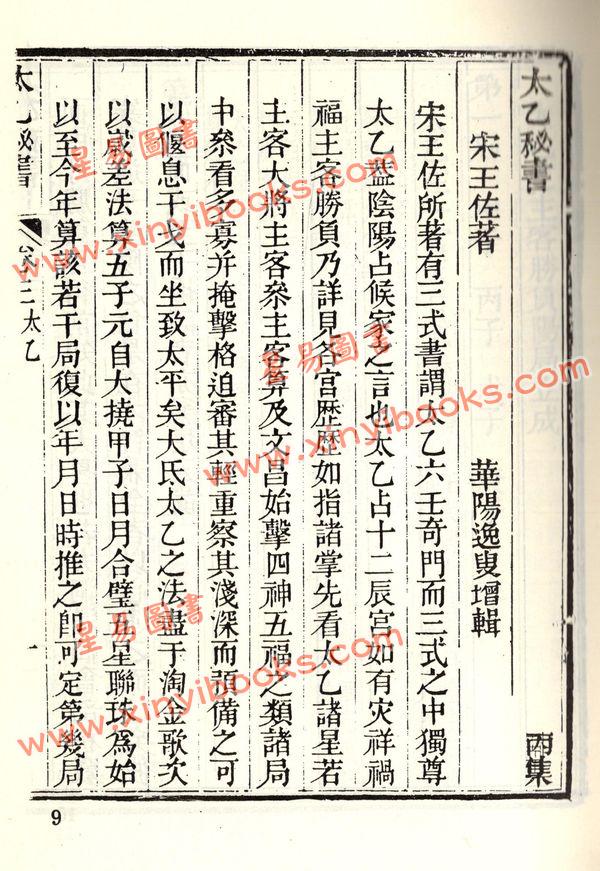 太乙秘書 丙集
宋王佐著 華陽逸叟增輯
宋王佐所著有三式書謂太乙六壬奇門而三式之中獨尊
太乙蓋陰陽占候家之言也太乙占十二辰宮如有灾祥禍
福主客勝負乃詳見各宮歷歷如指諸掌先看太乙諸星若
主客大將主客叅主客算及文昌始擊四神五福之類諸局
中叅看多寡并掩擊格迫審其輕重察其淺深而預備之可
以偃息干戈而坐致太平矣大氐太乙之法盡于淘金歌次
以歲差法算五子元自大撓甲子日月合璧五星聯珠爲始
以至今年算該若干局復以年月日時推之即可定第幾局
太乙秘書 太乙
9
星易圖書
www.xinyibooks.com
星易圖書
www.xinyibooks.com
星易圖書
www.xinyibooks.com